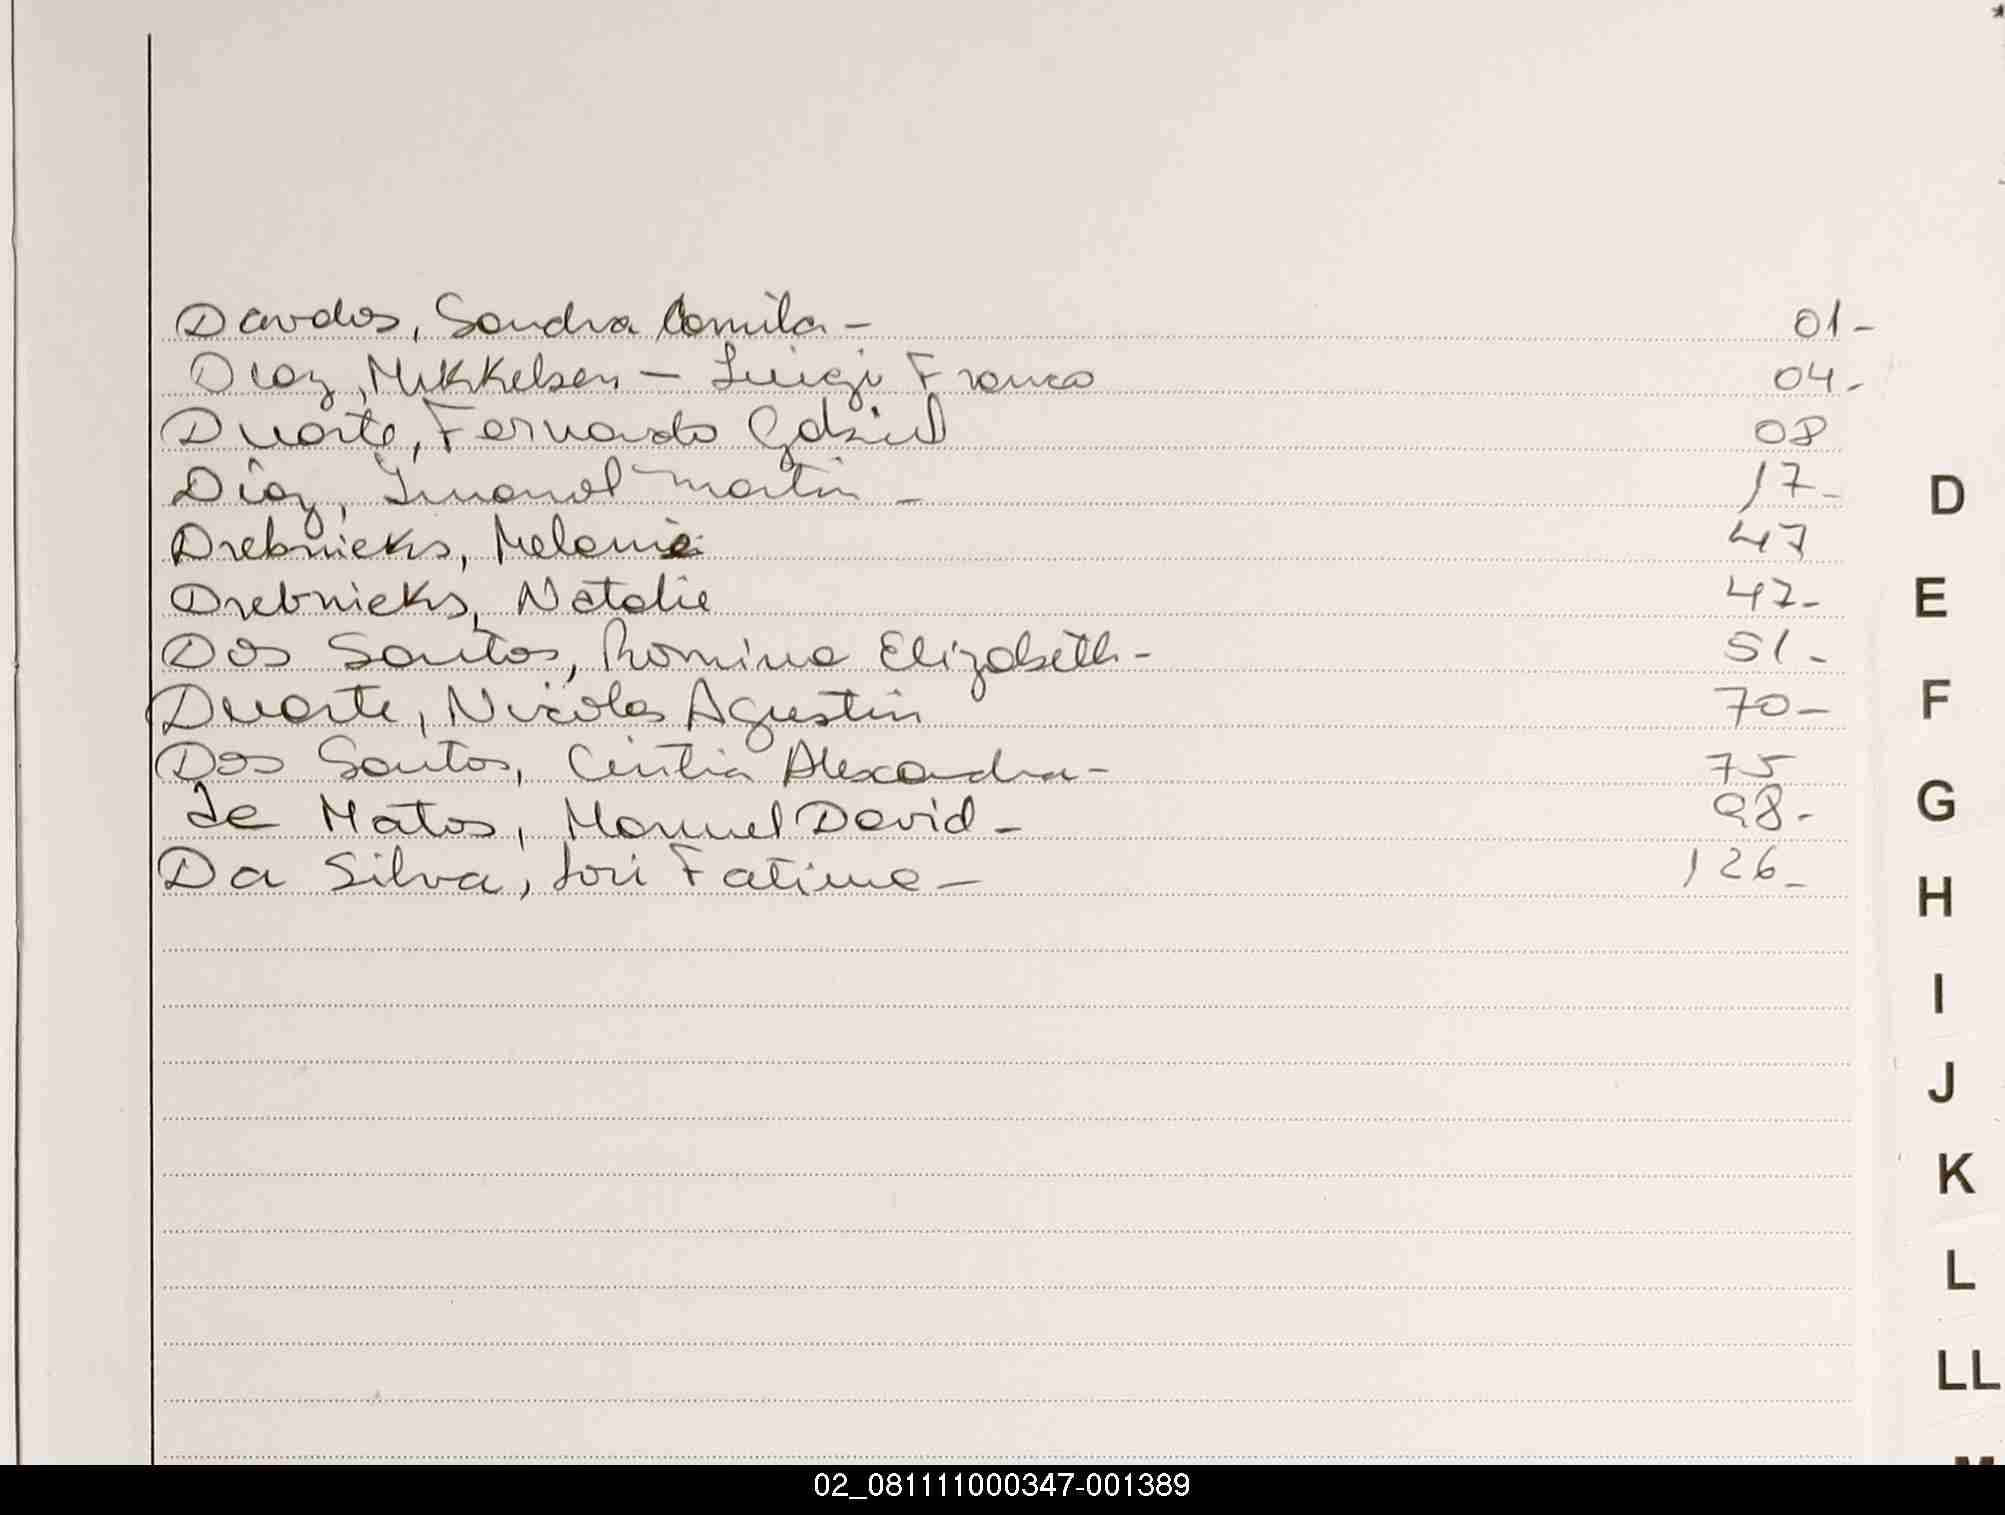 Dardos, Sandra Camila - 01 -
Diaz, Mikkelsen - Luigi Franco 04 -
Duarte, Fernando Gabriel 08
Díaz, Imanol Martin - 17 -
Drebnieks, Melanie 47
Drebnieks, Natalie 47 -
Dos Santos, Romina Elizabeth - 51 -
Duarte, Nicolas Agustin 70 -
Dos Santos, Cintia Alexandra - 75
de Matos, Manuel David - 98 -
Da Silva, Lori Fatima - 126 -
D
E
F
G
H
I
J
K
L
LL
M
02_081111000347-001389